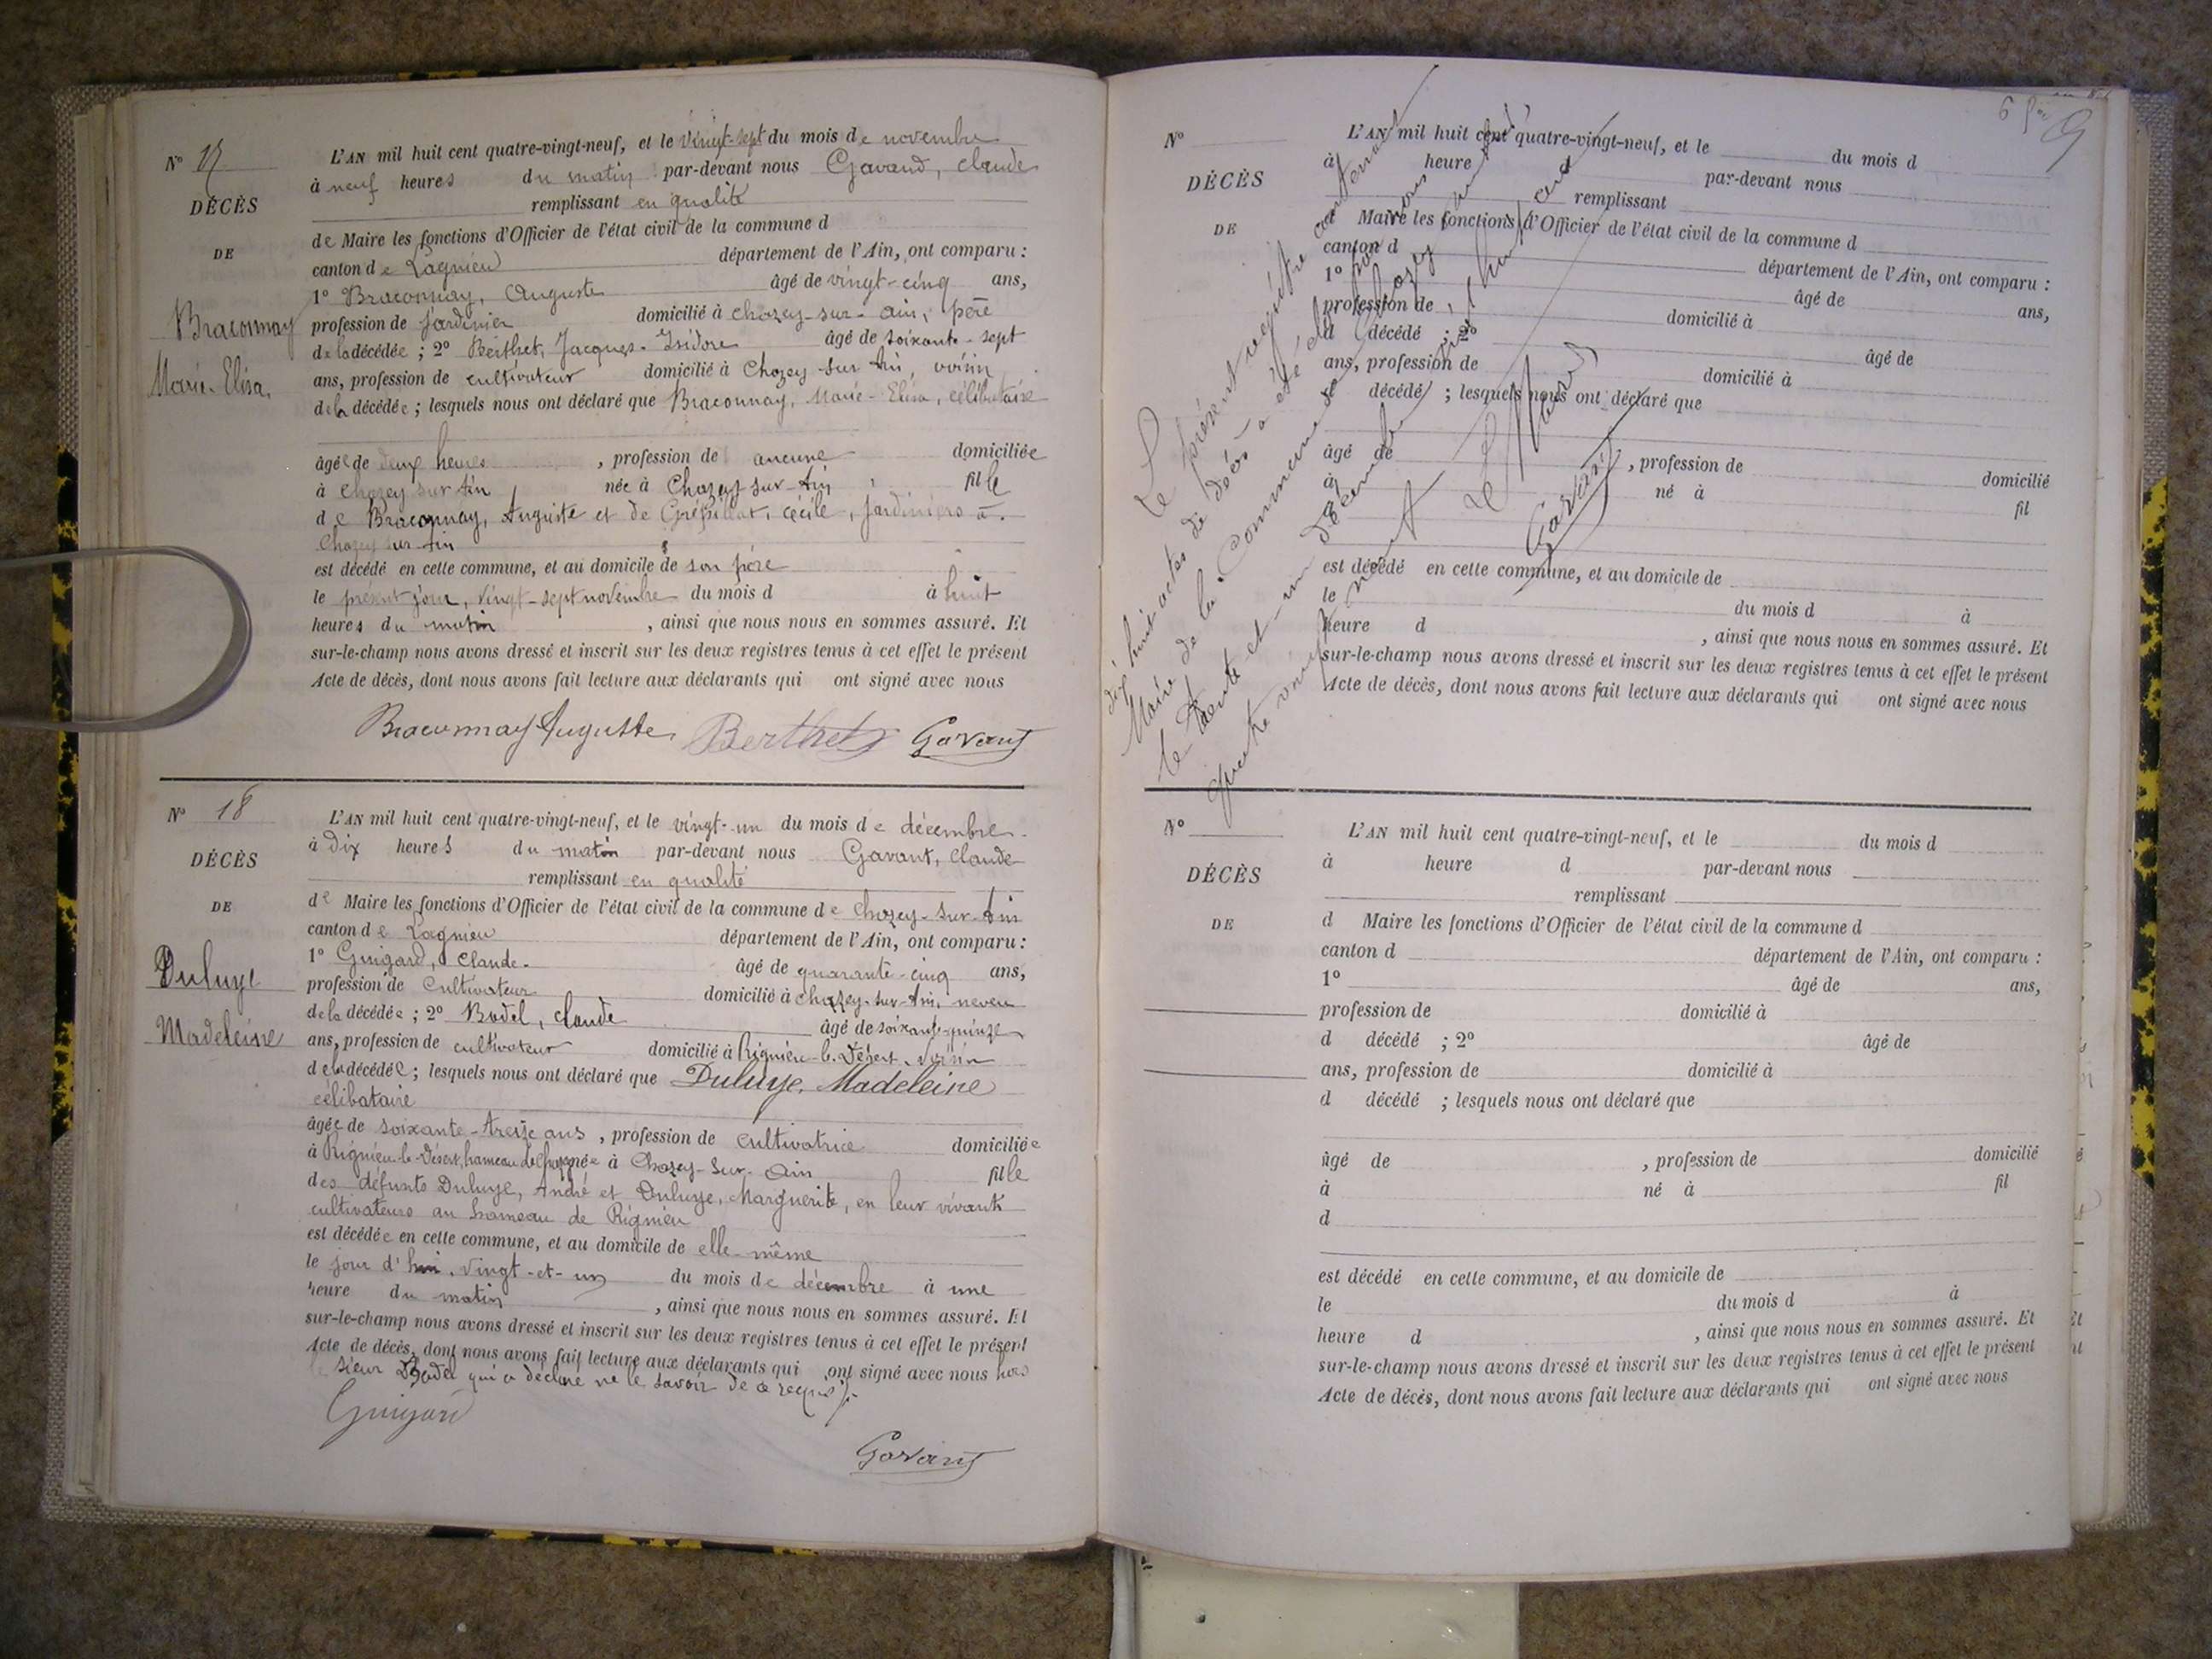 N° 17
DÉCÈS
DE
Braconnay
Marie-Elisa.
L'AN mil huit cent quatre-vingt-neuf, et le vingt-sept du mois de novembre
à neuf heures du matin par-devant nous Gavand, Claude
remplissant en qualité
de Maire les fonctions d'Officier de l'état civil de la commune d
canton de Lagnieu département de l'Ain, ont comparu :
1° Braconnay, Auguste âgé de vingt-cinq ans,
profession de Jardinier domicilié à Chazey-sur-Ain, père
de la décédée ; 2° Berthet, Jacques-Isidore âgé de soixante-sept
ans, profession de cultivateur domicilié à Chazey-sur-Ain, voisin
de la décédée ; lesquels nous ont déclaré que Braconnay, Marie-Elisa, célibataire
âgée de deux heures , profession de aucune domiciliée
à Chazey sur Ain née à Chazey-sur-Ain fille
de Braconnay, Auguste et de Cécile, Jardiniers à
Chazey sur-Ain
est décédé en cette commune, et au domicile de son père
le présent jour, vingt-sept novembre du mois d à huit
heures du matin , ainsi que nous nous en sommes assuré. Et
sur-le-champ nous avons dressé et inscrit sur les deux registres tenus à cet effet le présent
Acte de décès, dont nous avons fait lecture aux déclarants qui ont signé avec nous
Braconnay Auguste Berthet Gavant
N° 18
DÉCÈS
DE
Duluye
Madeleine
L'AN mil huit cent quatre-vingt-neuf, et le vingt-un du mois de décembre
à Dix heures du matin par-devant nous Gavant, Claude
remplissant en qualité
de Maire les fonctions d'Officier de l'état civil de la commune de Chazey-sur-Ain
canton de Lagnieu département de l'Ain, ont comparu :
1° Guigard, Claude. âgé de quarante-cinq ans,
profession de Cultivateur domicilié à Chazey-sur-Ain, neveu
de la décédée ; 2° Badel, Claude âgé de soixante-quinze
ans, profession de cultivateur domicilié à Rignieu-le-Désert, voisin
de la décédée ; lesquels nous ont déclaré que Duluye, Madeleine
célibataire
âgée de soixante-treize ans , profession de cultivatrice domiciliée
à Rignieu-le-Désert, hameau de Chazey née à Chazey-sur-Ain fille
des défunts Duluye, André et Duluye, Marguerite, en leur vivant
cultivateurs au hameau de Rignieu
est décédée en cette commune, et au domicile de elle-même
le jour d'hui, vingt-et-un du mois de décembre à une
heure du matin , ainsi que nous nous en sommes assuré. Et
sur-le-champ nous avons dressé et inscrit sur les deux registres tenus à cet effet le présent
Acte de décès, dont nous avons fait lecture aux déclarants qui ont signé avec nous hors
le sieur Badel qui a déclaré ne le savoir de ce requis
Guigard
Gavant
N°
DÉCÈS
DE
L'AN mil huit cent quatre-vingt-neuf, et le du mois d
à heure d par-devant nous
remplissant
d Maire les fonctions d'Officier de l'état civil de la commune d
canton d département de l'Ain, ont comparu :
1° âgé de ans,
profession de domicilié à
d décédé ; 2° âgé de
ans, profession de domicilié à
d décédé ; lesquels nous ont déclaré que
âgé de , profession de domicilié
à né à fil
d
est décédé en cette commune, et au domicile de
le du mois d à
heure d , ainsi que nous nous en sommes assuré. Et
sur-le-champ nous avons dressé et inscrit sur les deux registres tenus à cet effet le présent
Acte de décès, dont nous avons fait lecture aux déclarants qui ont signé avec nous
Le présent registre contenant
dix huit actes de décès a été clos par nous
Maire de la Commune de Chazey sur Ain
le trente-et-un décembre mil huit cent
quatre vingt neuf
Le Maire
Gavant
N°
DÉCÈS
DE
L'AN mil huit cent quatre-vingt-neuf, et le du mois d
à heure d par-devant nous
remplissant
d Maire les fonctions d'Officier de l'état civil de la commune d
canton d département de l'Ain, ont comparu :
1° âgé de ans,
profession de domicilié à
d décédé ; 2° âgé de
ans, profession de domicilié à
d décédé ; lesquels nous ont déclaré que
âgé de , profession de domicilié
à né à fil
d
est décédé en cette commune, et au domicile de
le du mois d à
heure d , ainsi que nous nous en sommes assuré. Et
sur-le-champ nous avons dressé et inscrit sur les deux registres tenus à cet effet le présent
Acte de décès, dont nous avons fait lecture aux déclarants qui ont signé avec nous